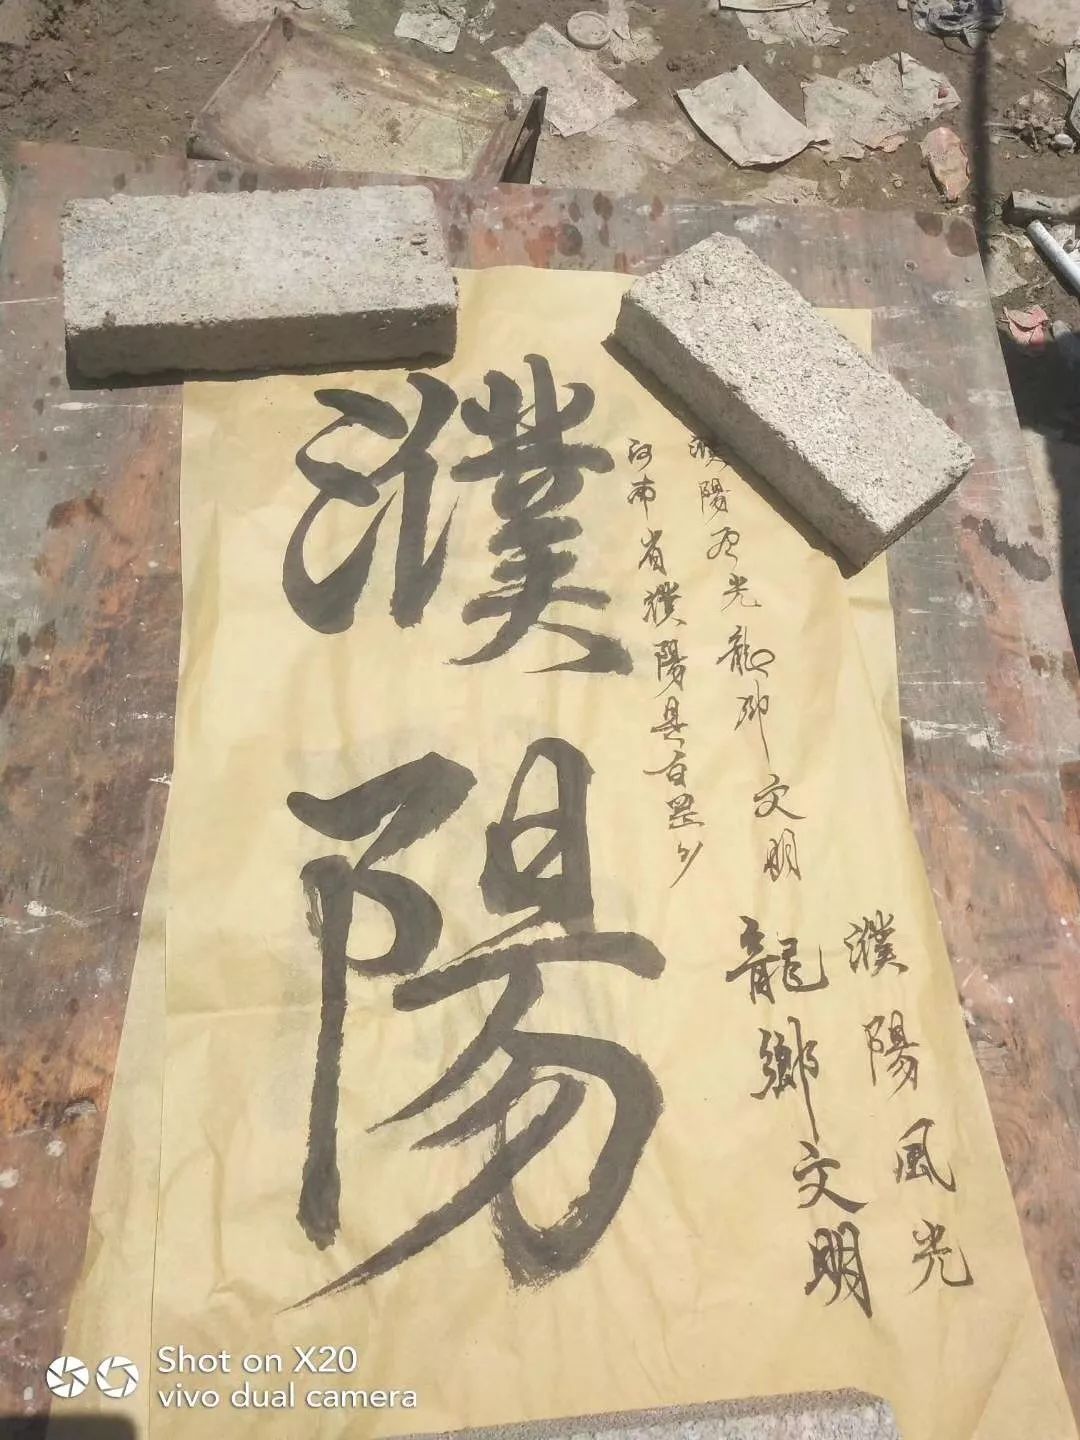 濮陽
濮陽風光
龍鄉文明
濮陽風光龍鄉文明
河南省濮陽縣百罡
Shot on X20
vivo dual camera